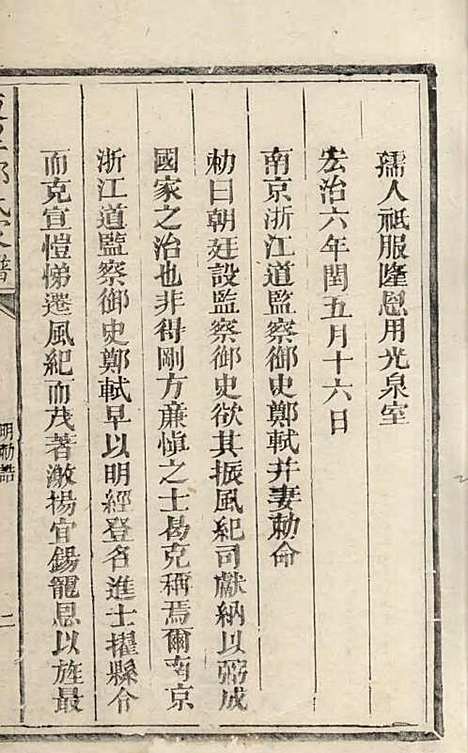 孺人祗服隆恩用光泉室
宏治六年閏五月十六日
南京浙江道監察御史鄭軾并妻勅命
勅曰朝廷設監察御史欲其振風紀司獻納以弼成
國家之治也非得剛方廉愼之士曷克稱焉爾南京
浙江道監察御史鄭軾早以明經登名進士擢縣令
而克宣愷悌遷風紀而茂著激揚宜錫寵恩以旌最
氏家譜
明勅誥
二